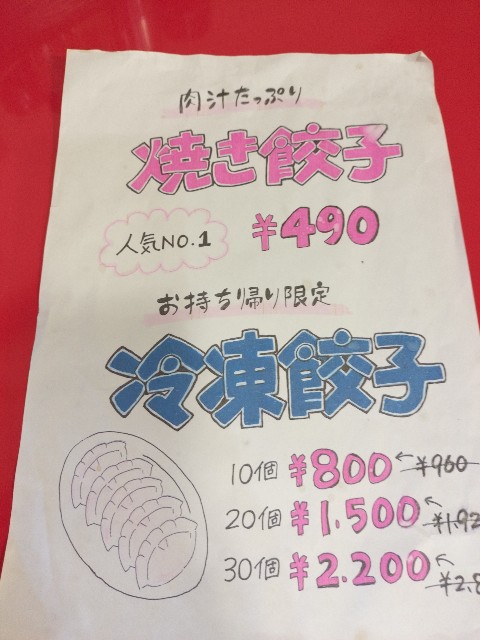 肉汁たっぷり
焼き餃子
人気NO.1 ¥490
お持ち帰り限定
冷凍餃子
10個 ¥800 ← ¥960
20個 ¥1.500 ←
30個 ¥2.200 ←